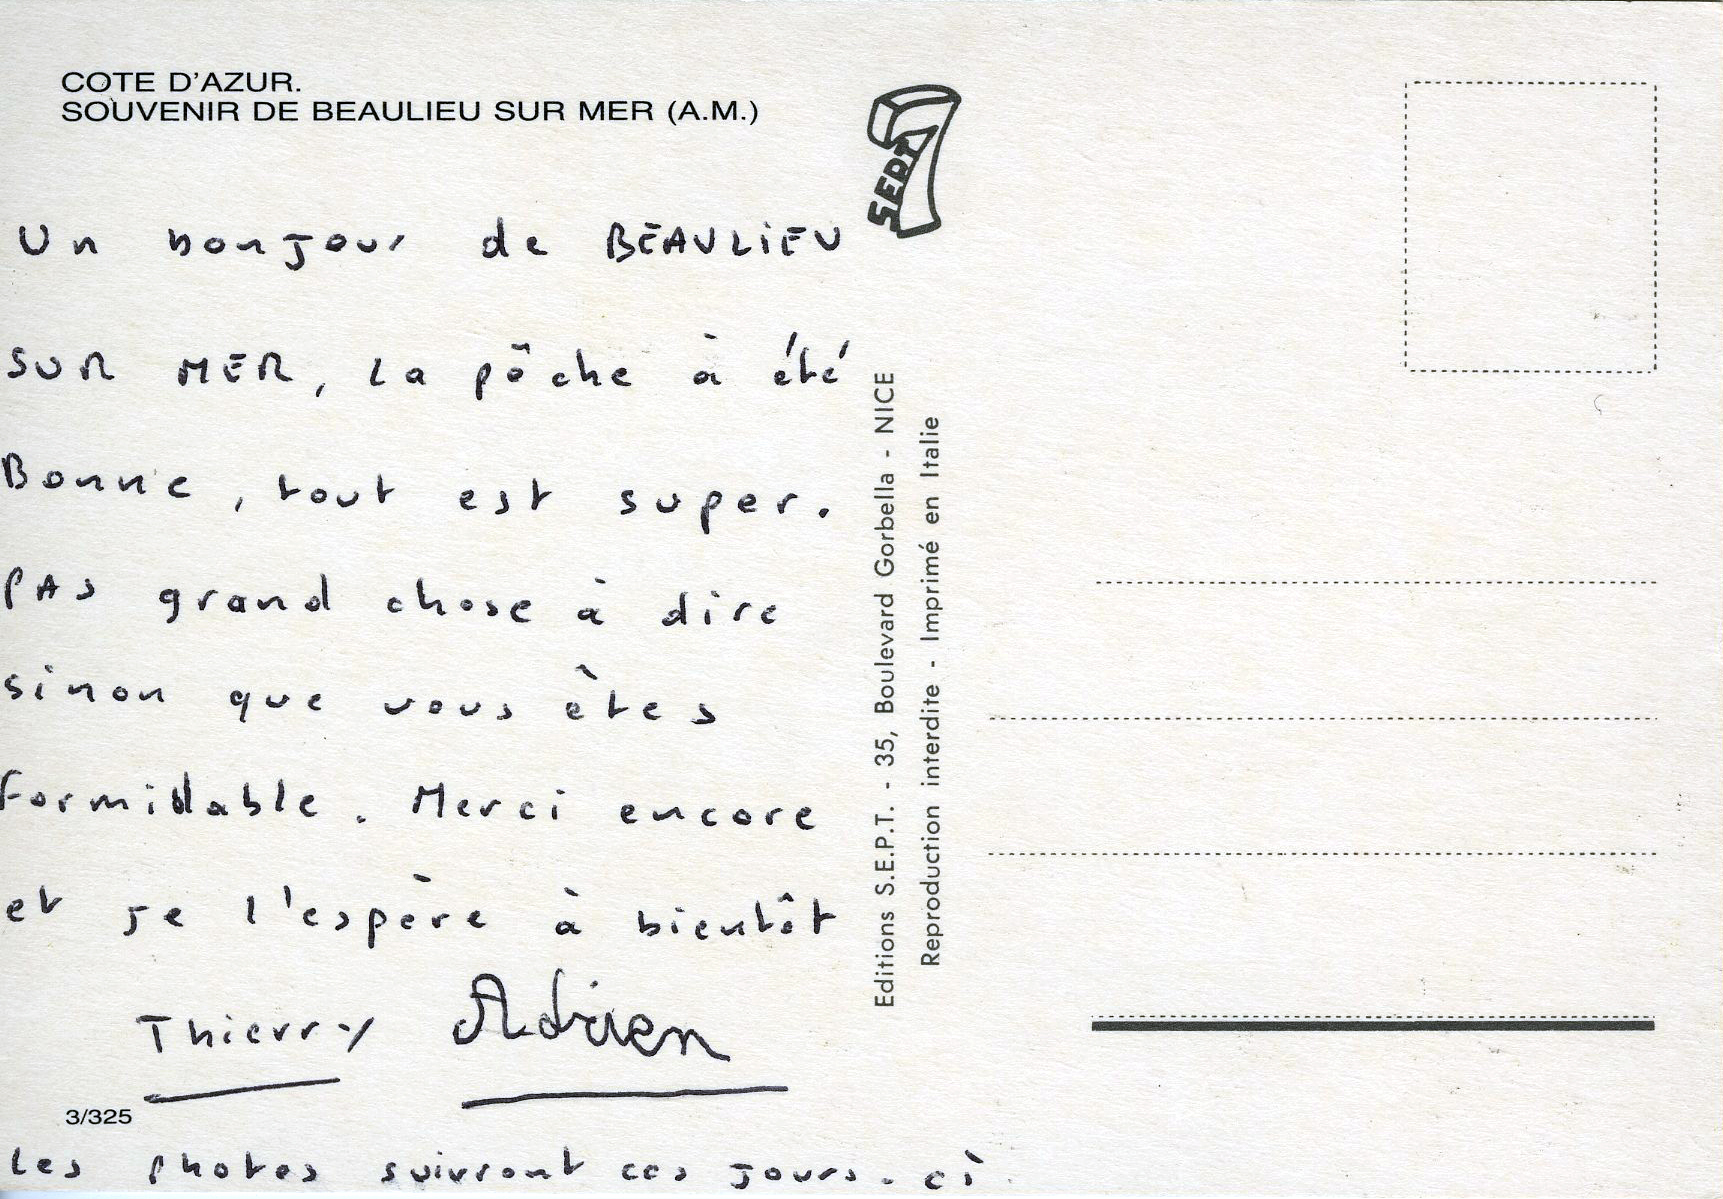 COTE D'AZUR.
SOUVENIR DE BEAULIEU SUR MER (A.M.)
SEPT
Un bonjour de BEAULiEU
SUR MER, La pêche à été
Bonne, tout est super.
PAS grand chose à dire
sinon que vous êtes
Formidable. Merci encore
et je l'espère à bientôt
Thierry Adrien
3/325
Les photos suivront ces jours-ci
Editions S.E.P.T. - 35, Boulevard Gorbella - NICE
Reproduction interdite - Imprimé en Italie